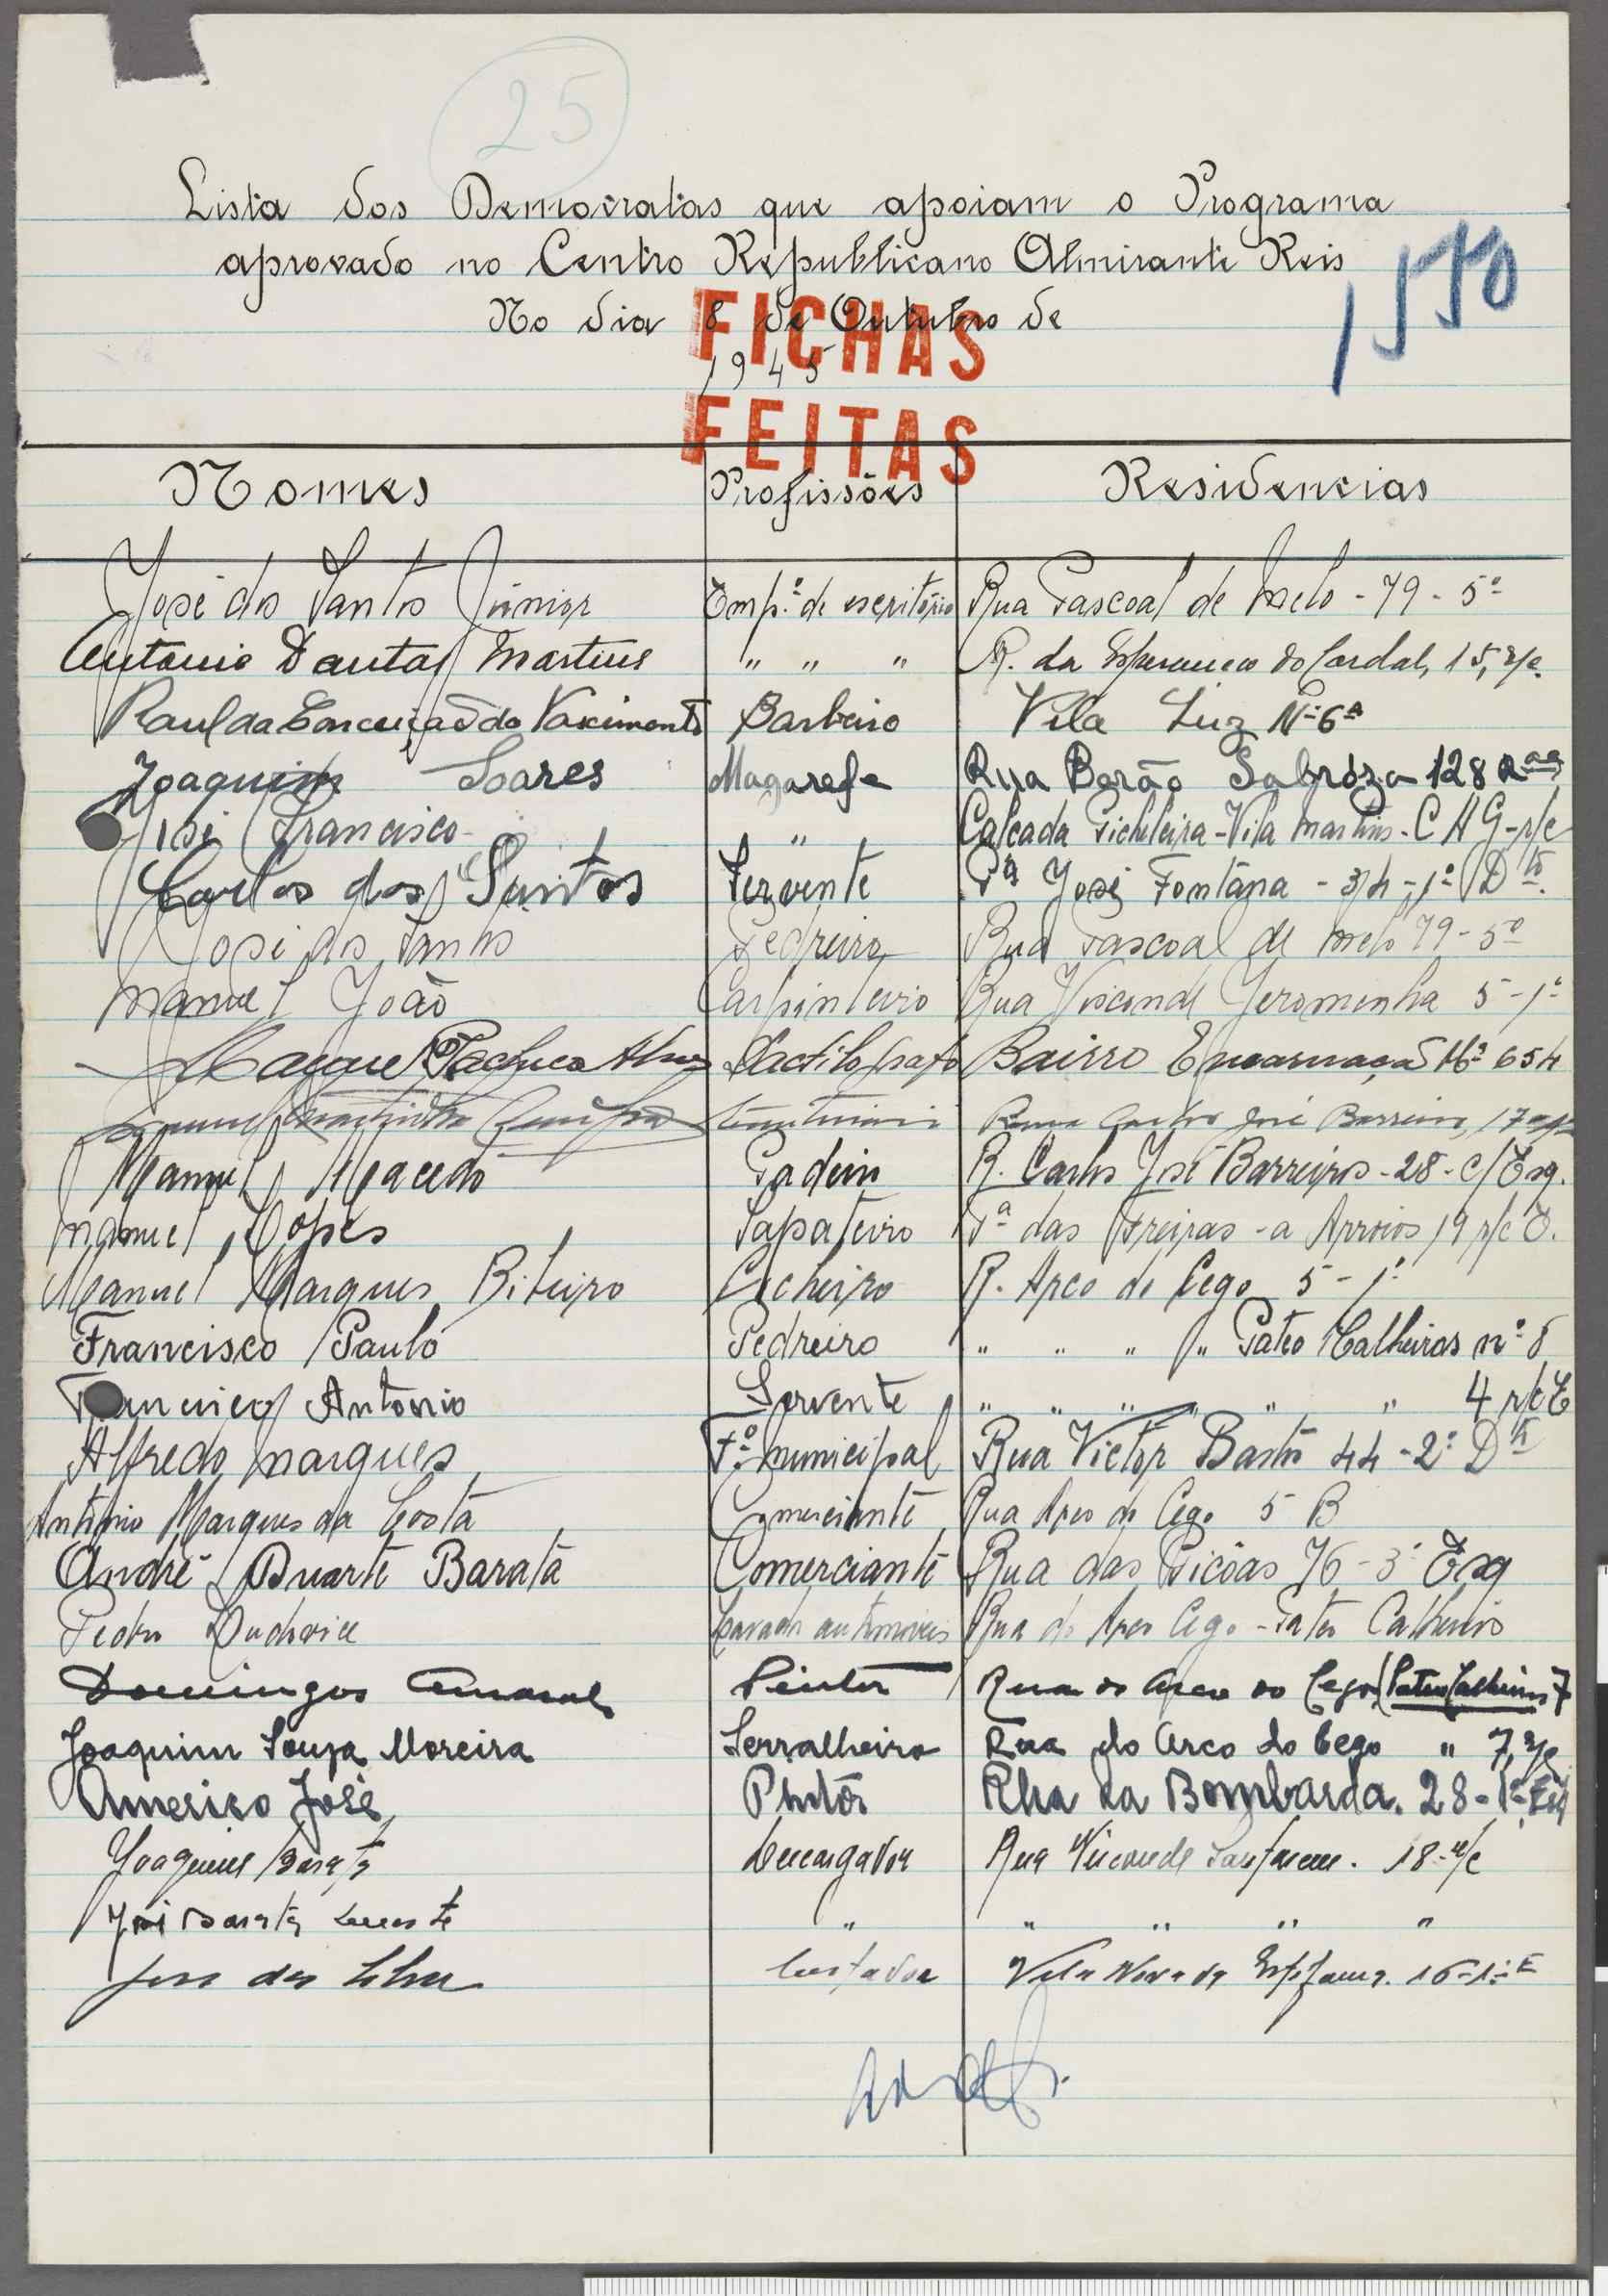 25
Lista dos Democratas que apoiam o Programa
aprovado no Centro Republicano Almirante Reis
1550
No dia 8 de Outubro de
1945
FICHAS
FEITAS
Nomes Profissões Residencias
José dos Santos Júnior Emp.º de escritório Rua Pascoal de Melo - 79 - 5º
Antonio Dantas Martins " " " R. da Esperança do Cardal, 15, r/c.
Raul da Conceição do Nascimento Barbeiro Vila Luz Nº 6ª
Joaquim Soares Magarefe Rua Barão Sabroza 128
José Francisco " Calçada Picheleira - Vila Martins - C H G - r/c
Carlos dos Santos Servente Pª José Fontana - 34 - 1º Dto.
José dos Santos Pedreiro Rua Pascoal de Melo 79 - 5º
Manuel João Carpinteiro Rua Viscond Jeromenha 5 - 1º
Pacheco Dactilografo Bairro Encarnação Nº 654
Rua Carlos José Barreiros, 17
Manuel Macedo Padeiro R. Carlos José Barreiros - 28 - c/ Esq.
Manuel Lopes Sapateiro Tª das Freiras - a Arroios 19 r/c E.
Manuel Marques Ribeiro Cocheiro R. Arco do Cego 5 - 1º
Francisco Paulo Pedreiro " " " " Pateo Calheiros nº 8
Francisco Antonio Servente " " " " " " 4 r/c E
Alfredo Marques Fº. Municipal Rua Victor Bastos 44 - 2º Dto
António Marques da Costa Comerciante Rua Arco do Cego 5 B
André Duarte Barata Comerciante Rua das Picôas 76 - 3º Esq
Pedro Ludovice Lavador automoveis Rua do Arco Cego - Pateo Calheiros
Domingos Amaral Pintor Rua do Arco do Cego Pateo Calheiros 7
Joaquim Souza Moreira Serralheiro Rua do Arco do Cego " 7, r/c
Americo José Pintôr Rua da Bombarda. 28 - 1º Esq
Joaquim Barata Descarregador Rua Visconde Santarem. 18 - r/c
José Barata Duarte " " " " "
José da Silva Vila Nova da Estefania. 16 - 1º E